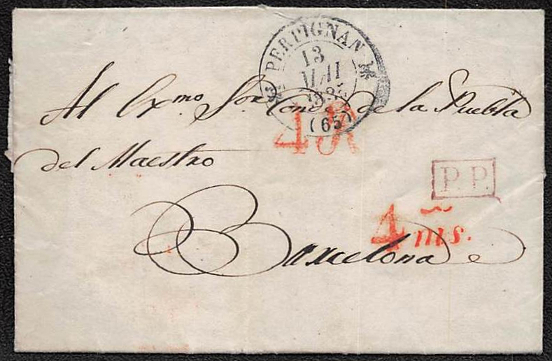 PERPIGNAN
13
MAI
(65)
4R
Al Exmo Sor Conde de la Puebla
del Maestro
P.P.
4 ms.
Barcelona